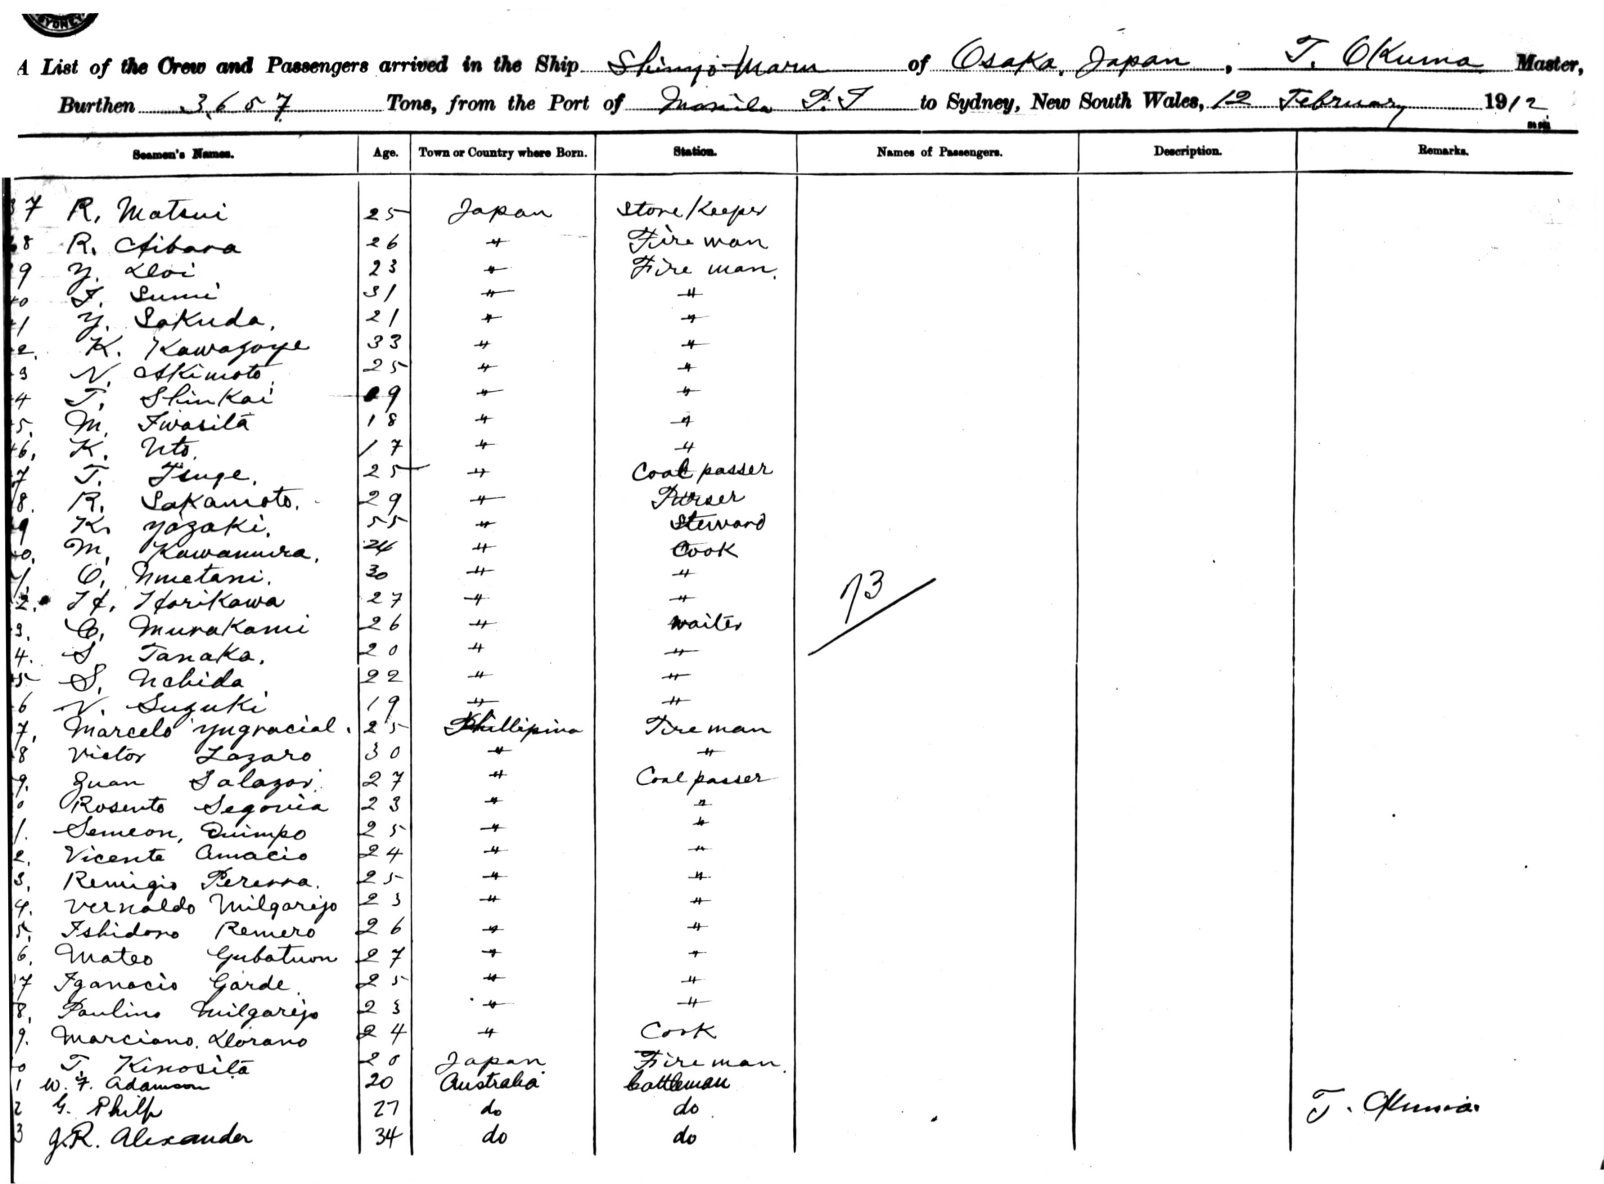 SYDNEY
A List of the Crew and Passengers arrived in the Ship Shinyo Maru of Osaka, Japan, T. Okuma Master,
Burthen 3657 Tons, from the Port of Manila P.I to Sydney, New South Wales, 12 February 1912
Seamen's Names. Age. Town or Country where Born. Station. Names of Passengers. Description. Remarks.
37 R. Matsui 25 Japan Store Keeper
8 R. Aibara 26 " Fire man
9 Y. Doi 23 " Fire man.
0 I. Sumi 31 " "
1 Y. Sakuda. 21 " "
2. K. Kawazoye 33 " "
3 N. Akimoto 25 " "
4 T. Shinkai 29 " "
5. M. Iwasita 18 " "
6. K. Uto. 17 " "
7 T. Tsuge. 25 " Coal passer
8. R. Sakamoto. 29 " Purser
9 K. Yazaki. 55 " Steward
0. M. Kawamura. 24 " Cook
1. O. Umetani. 30 " "
2. H. Horikawa 27 " "
73
3. C. Murakami 26 " waiter
4. S Tanaka. 20 " "
5 S. Uchida 22 " "
6 N. Suzuki 19 " "
7. Marcelo Yugracial. 25 Phillipina Fire man
8 Victor Lazaro 30 " "
9. Juan Salazar. 27 " Coal passer
0 Rosento Segovia 23 " "
1. Semeon, Quimpo 25 " "
2. Vicente Amacio 24 " "
3. Remigio Perera. 25 " "
4. Vernaldo Milgarejo 23 " "
5. Ishidoro Remero 26 " "
6. Mateo Gubatuon 27 " "
7 Iganacio Garde. 25 " "
8. Paulino Milgarejo 23 " "
9. Marciano. Dorano 24 " Cook
0 T. Kinosita 20 Japan Fire man.
1 W. F. Adamson 20 Australia Cattleman
2 G. Philp 27 do do T. Okuma.
3 J.R. Alexander 34 do do